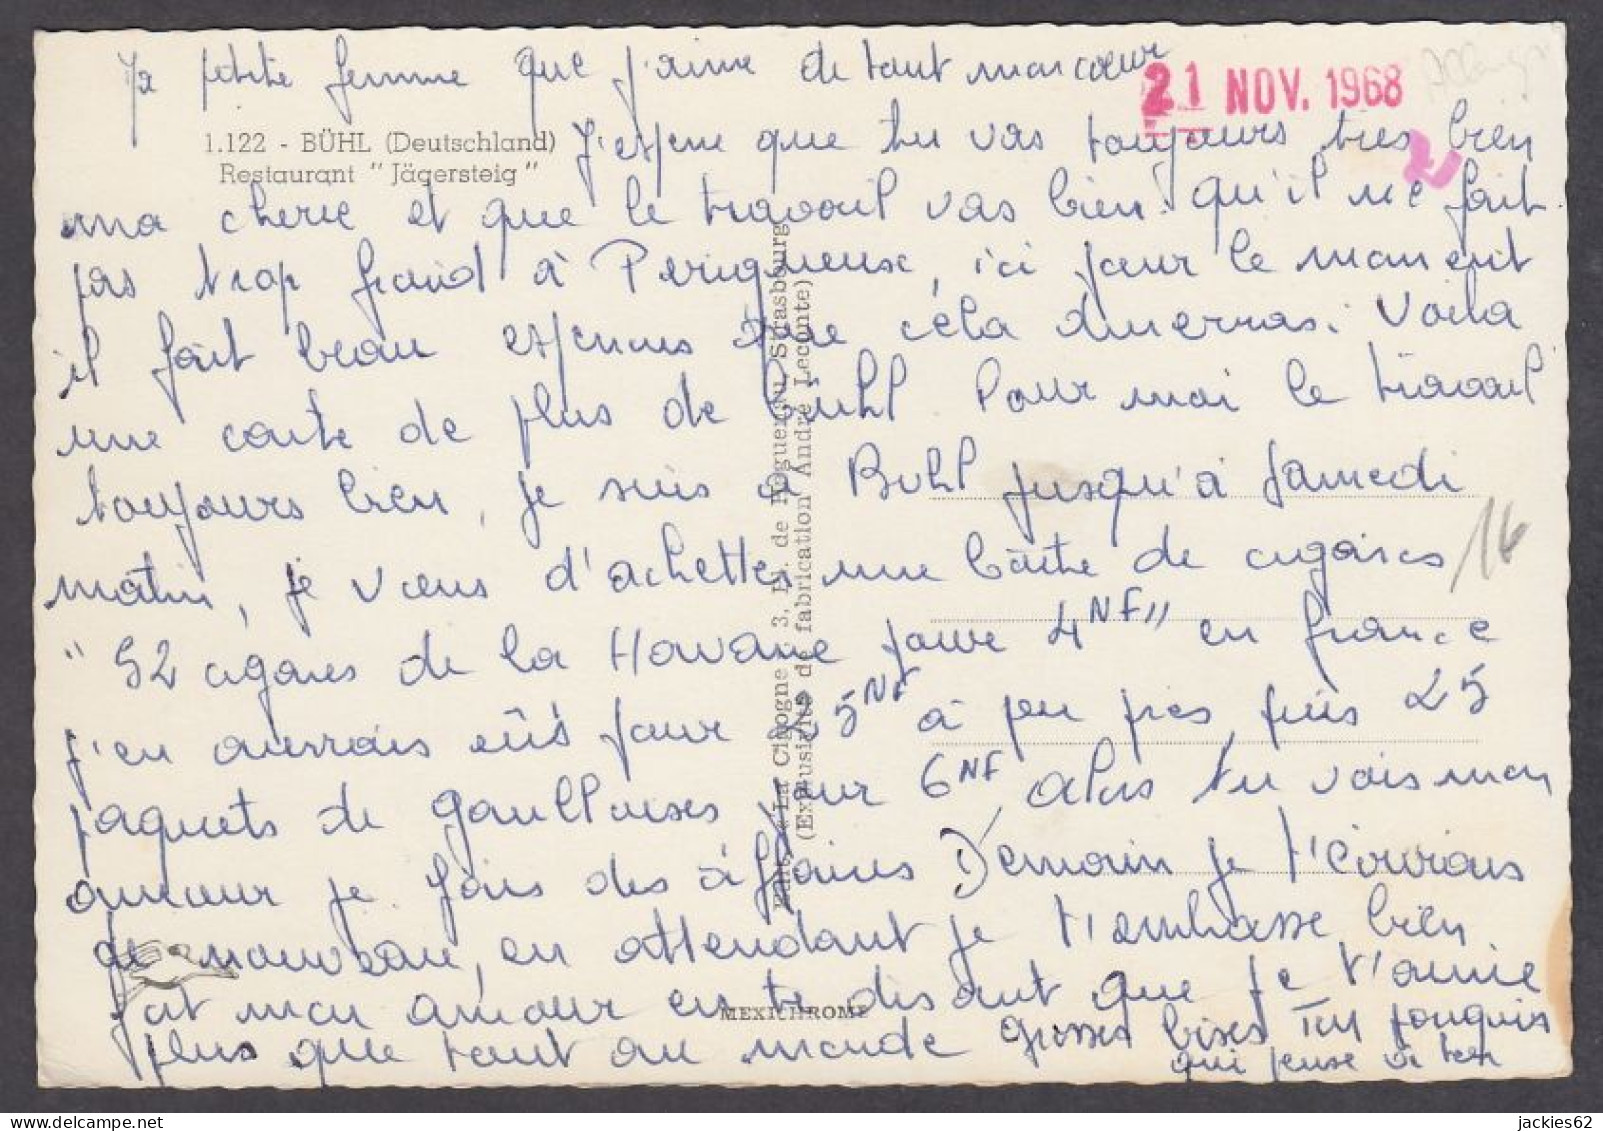 Ma petite femme que j'aime de tout mon coeur
21 NOV. 1968
1.122 - BÜHL (Deutschland)
Restaurant "Jägersteig"
J'espere que tu vas toujours très bien
ma cherie et que le travail vas bien. qu'il ne fait
pas trop froid à Perigueux, ici pour le moment
il fait beau esperons que céla durerras. Voila
une carte de plus de Buhl. Pour moi le travail
toujours bien, je suis à Buhl jusqu'à samedi
matin, je viens d'achetter une boite de cigares
16
"52 cigares de la Havane pour 4 NF" en france
j'en aurrais eûs pour 25 NF à peu près, puis 25
paquets de gaulloises pour 6 NF, alors tu vois mon
amour je fais des affaires Demain je t'écrirais
de nouveau, en attendant je t'embrasse bien
fort mon amour en te disant que je t'aime
plus que tout au monde grosses bises Ton
qui pense à toi
Edit. "La Cigogne" 3, Pl. de Haguenau Strasbourg
(Exclusivité de fabrication André Leconte)
MEXICHROME
jackies62